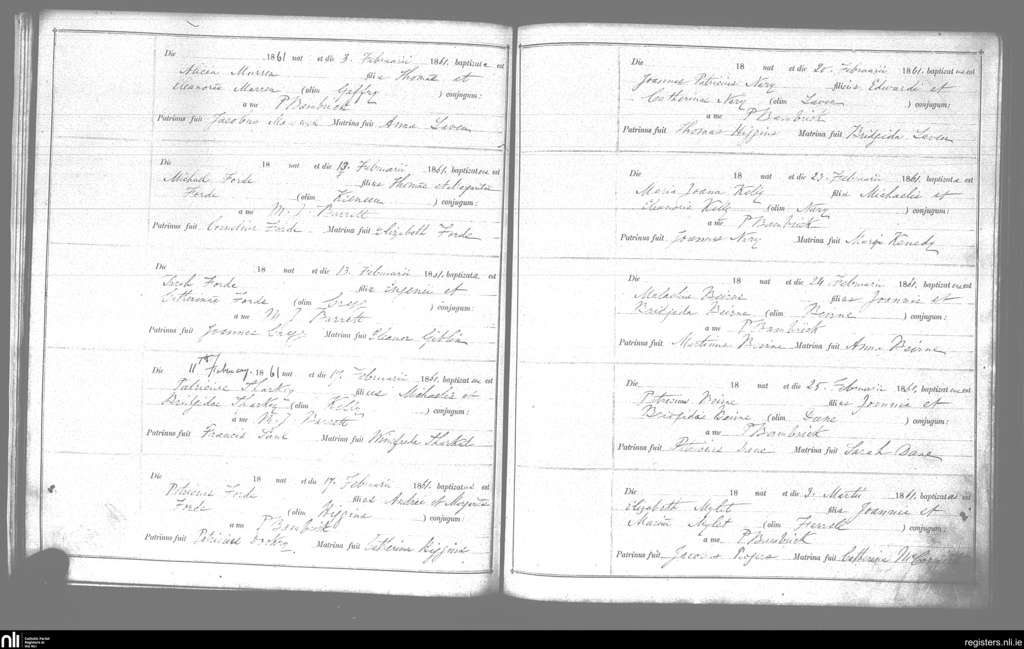 Die 1861 nat et die 3. Februarii 1861. baptizata est
Alicia Murren filia Thomae et
Eleanorae Murren (olim Geffry ) conjugum:
a me P Bambrick
Patrinus fuit Jacobus Matrina fuit Anna Laven
Die 18 nat et die 13. Februarii 1861. baptizatus est
Michael Forde filius Thomae et Margaritae
Forde (olim ) conjugum:
a me M. J. Barrett
Patrinus fuit Forde Matrina fuit Elizabeth Forde
Die 18 nat et die 13. Februarii 1861. baptizata est
Sarah Forde filia Eugenii et
Catherinae Forde (olim ) conjugum:
a me M J Barrett
Patrinus fuit Joannes Matrina fuit Eleanor Giblin
Die 11th February 1861 nat et die 17. Februarii 1861. baptizatus est
Patricius Sharkey filius Michaelis et
Bridgidae Sharkey (olim Kelly ) conjugum:
a me M. J. Barrett
Patrinus fuit Francis Lane Matrina fuit Winifrede
Die 18 nat et die 17. Februarii 1861. baptizatus est
Patricius Forde filius Andreae et Margaritae
Forde (olim Higgins ) conjugum:
a me P Bambrick
Patrinus fuit Patricius Matrina fuit Catherina Higgins
Die 18 nat et die 20. Februarii 1861. baptizatus est
Joannes Patricius Nery filius Edwardi et
Catherina Nery (olim Laven ) conjugum:
a me P Bambrick
Patrinus fuit Thomas Higgins Matrina fuit Bridgida Laven
Die 18 nat et die 23. Februarii 1861. baptizata est
Maria Joana Kelly filia Michaelis et
Eleanoria Kelly (olim Nery ) conjugum:
a me P Bambrick
Patrinus fuit Joannes Nery Matrina fuit Maria Kenedy
Die 18 nat et die 24. Februarii 1861. baptizatus est
Malachius Beirne filius Joannis et
Bridgida Beirne (olim Beirne ) conjugum:
a me P Bambrick
Patrinus fuit Martinus Beirne Matrina fuit Anna Beirne
Die 18 nat et die 25. Februarii 1861. baptizatus est
Patricius Beirne filius Joannis et
Bridgidae Beirne (olim ) conjugum:
a me P Bambrick
Patrinus fuit Patricius Matrina fuit Sarah
Die 18 nat et die 3. Martii 1861. baptizata est
Elizabeth Mylet filia Joannis et
Maria Mylet (olim ) conjugum:
a me P Bambrick
Patrinus fuit Jacobus Rogers Matrina fuit Catherina
nli Catholic Parish Registers at the NLI
registers.nli.ie